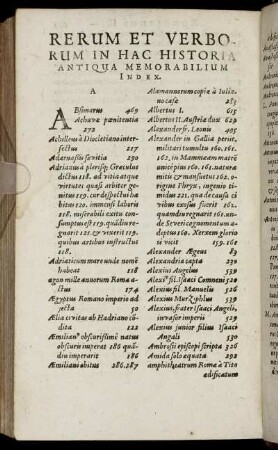 RERUM ET VERBO-
RUM IN HAC HISTORIA
ANTIQUA MEMORABILIUM
INDEX.
A
Absimarus 469
Achææ pœnitentia
272
Achilleus à Diocletiano inter-
fectus 217
Adarnasis sævitia 290
Adrianus à plerisq; Græculus
dictus 118. ad vitia atque
virtutes quasi arbiter ge-
nitus 119. cur despectui ha-
bitus 120. immensi laboris
118. miserabili exitu con-
sumptus est 119. quàdiu re-
gnarit 121. & vixerit 119.
quibus artibus instructus
118.
Adriaticum mare unde nomē
habeat 118
agon mille annorum Roma a-
ctus 174
Ægyptus Romano imperio ad
jecta 50
Ælia civitas ab Hadriano cō-
dita 122
Æmilianꝰ obscurissimè natus
obscurè imperat 186 quā-
diu imperarit 186
Æmiliani obitus 186.187
Alamannorum copiæ à Iulia-
no cæsæ 283
Albertus I. 615
Albertus II. Austriæ dux 629
Alexander fr. Leonis 405
Alexander in Gallia perit,
militari tumultu 160. 161.
162. in Mammæam matrē
unicè pius 160. 161. vir o-
ptimus beatissimus 162. o-
rigins Phryx, ingenio ti-
midus, 161. an deauspicaci ci
vibus fusus fuerit 161.
quamdiu regnarit 161. un-
de Severi cognomentum a-
deptus 160. Xerxem glorio
sè vicit 159. 161
Alexander Ægeus 83
Alexandria capta 230
Alexius Angelus 539
Alexiꝰ fil. Isaaci Comneni 520
Alexius fil. Manuelis 526
Alexius Murzphlus 539
Alexius, frater Isaaci Angeli,
invasor imperii 529
Alexius junior filius Isaaci
Angeli 530
Ambrosii epistopi scripta 326
Amida solo æquata 292
amphitheatrum Roma à Tito
ædificatum